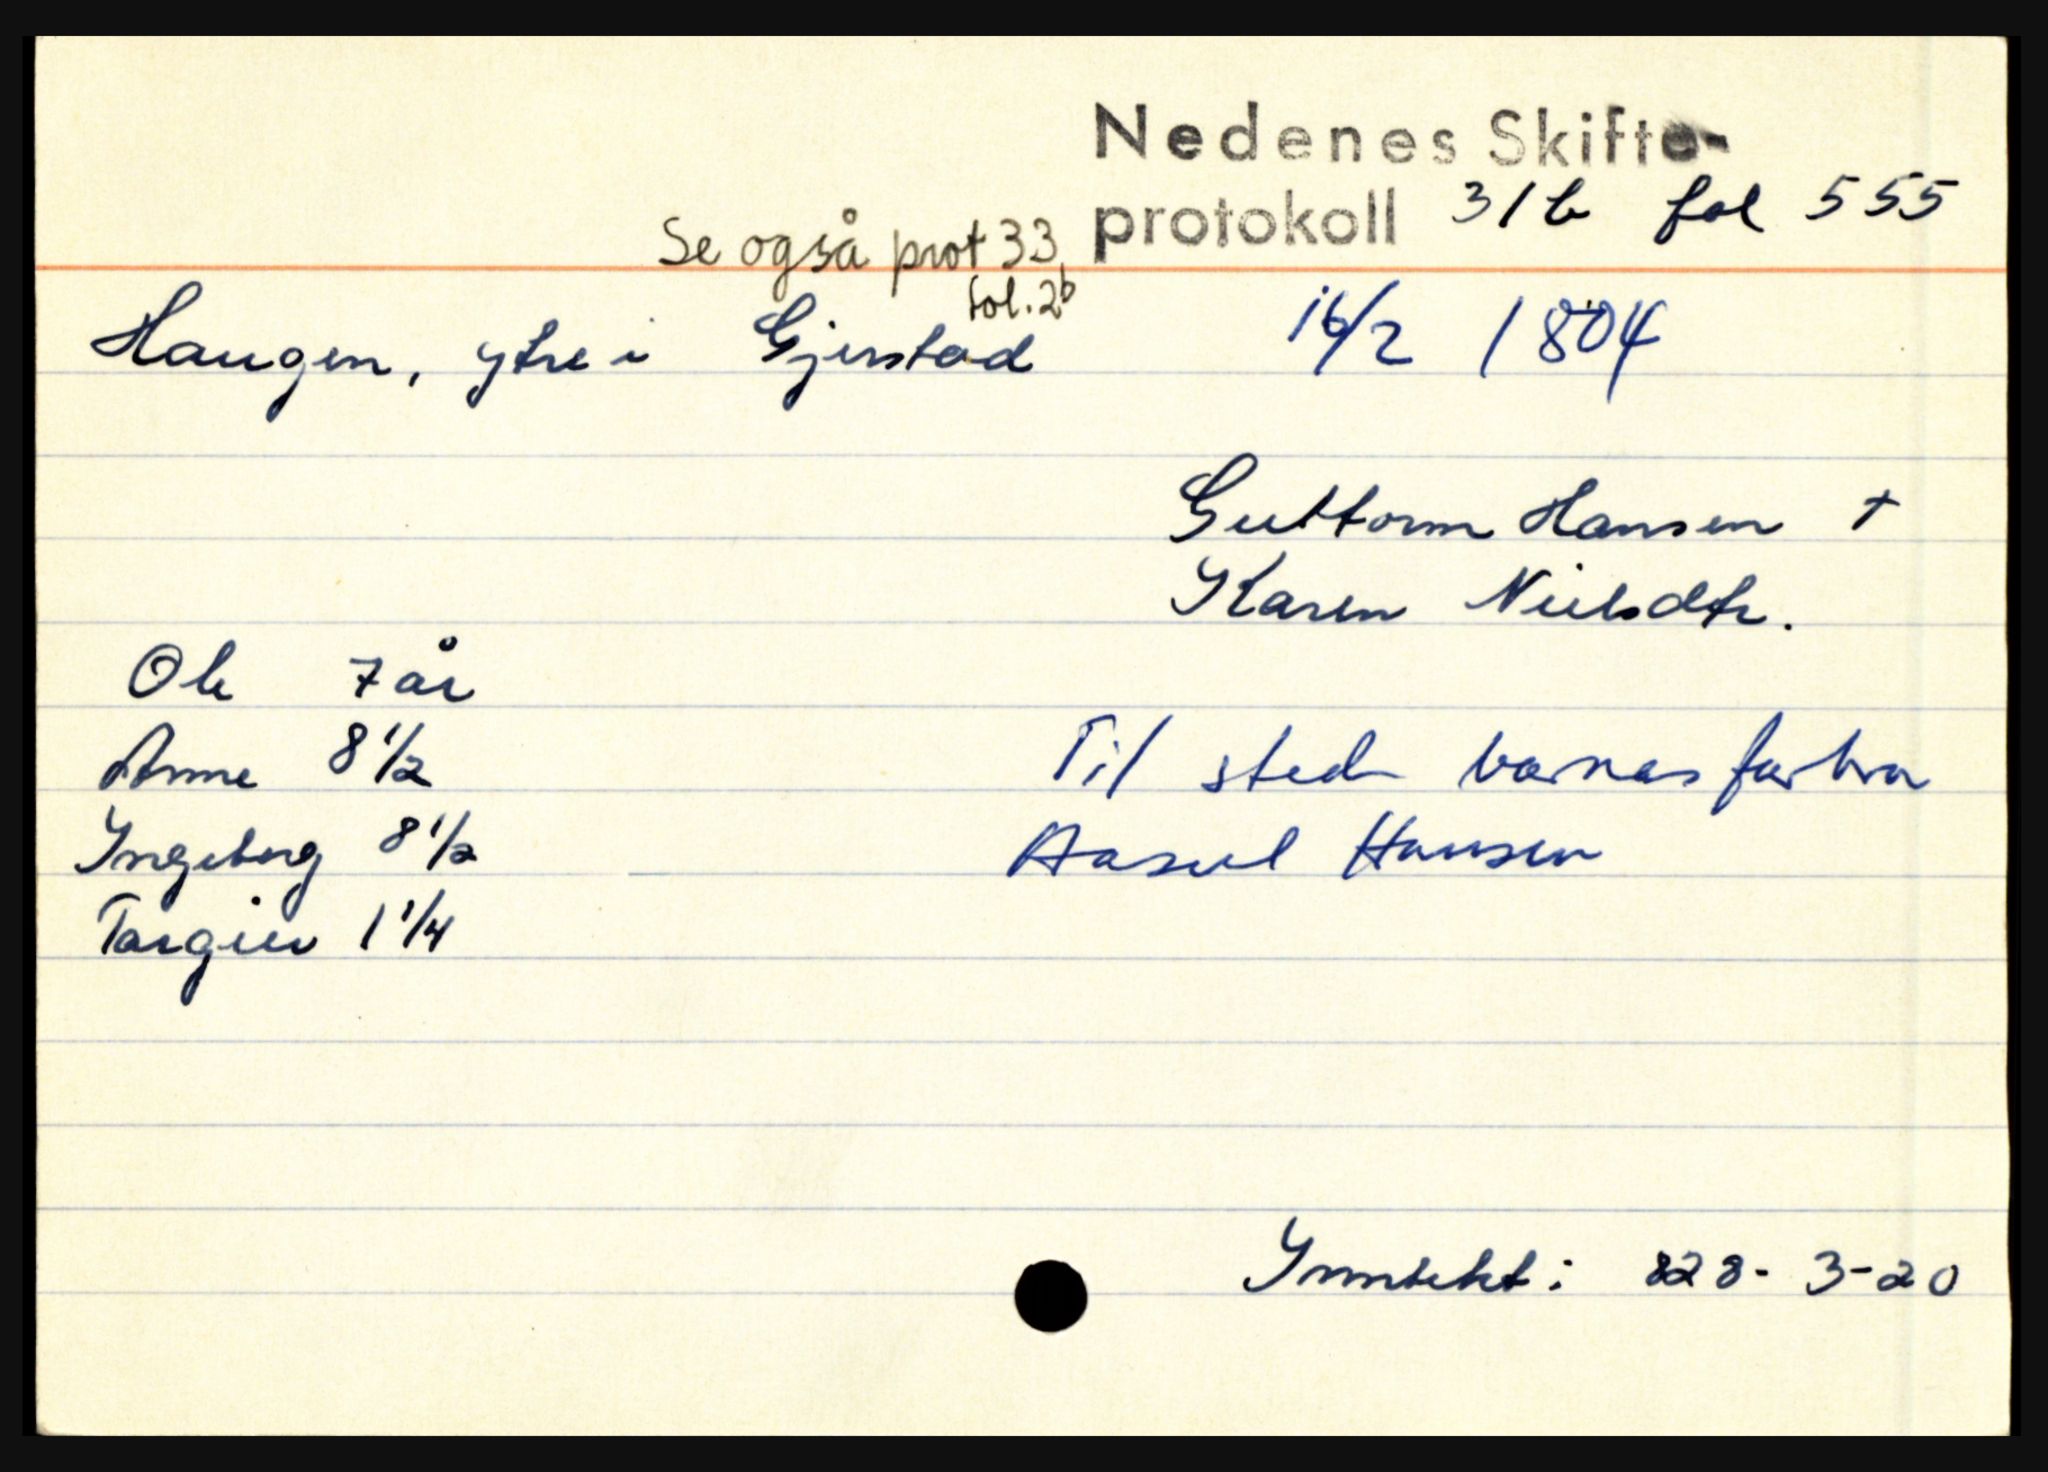 Nedenes Skifte-
protokoll 31b fol 555
Se også prot 33,
fol. 2b
Haugen, ytre i Gjerstad 16/2 1804
Guttorm Hansen †
Karen Nielsdtr.
Ole 7 år
Anne 8 1/2 Til stede barnas farbror
Ingeborg 8 1/2 Aasul Hansen
Targier 1 1/4
Inntekt: 828-3-20